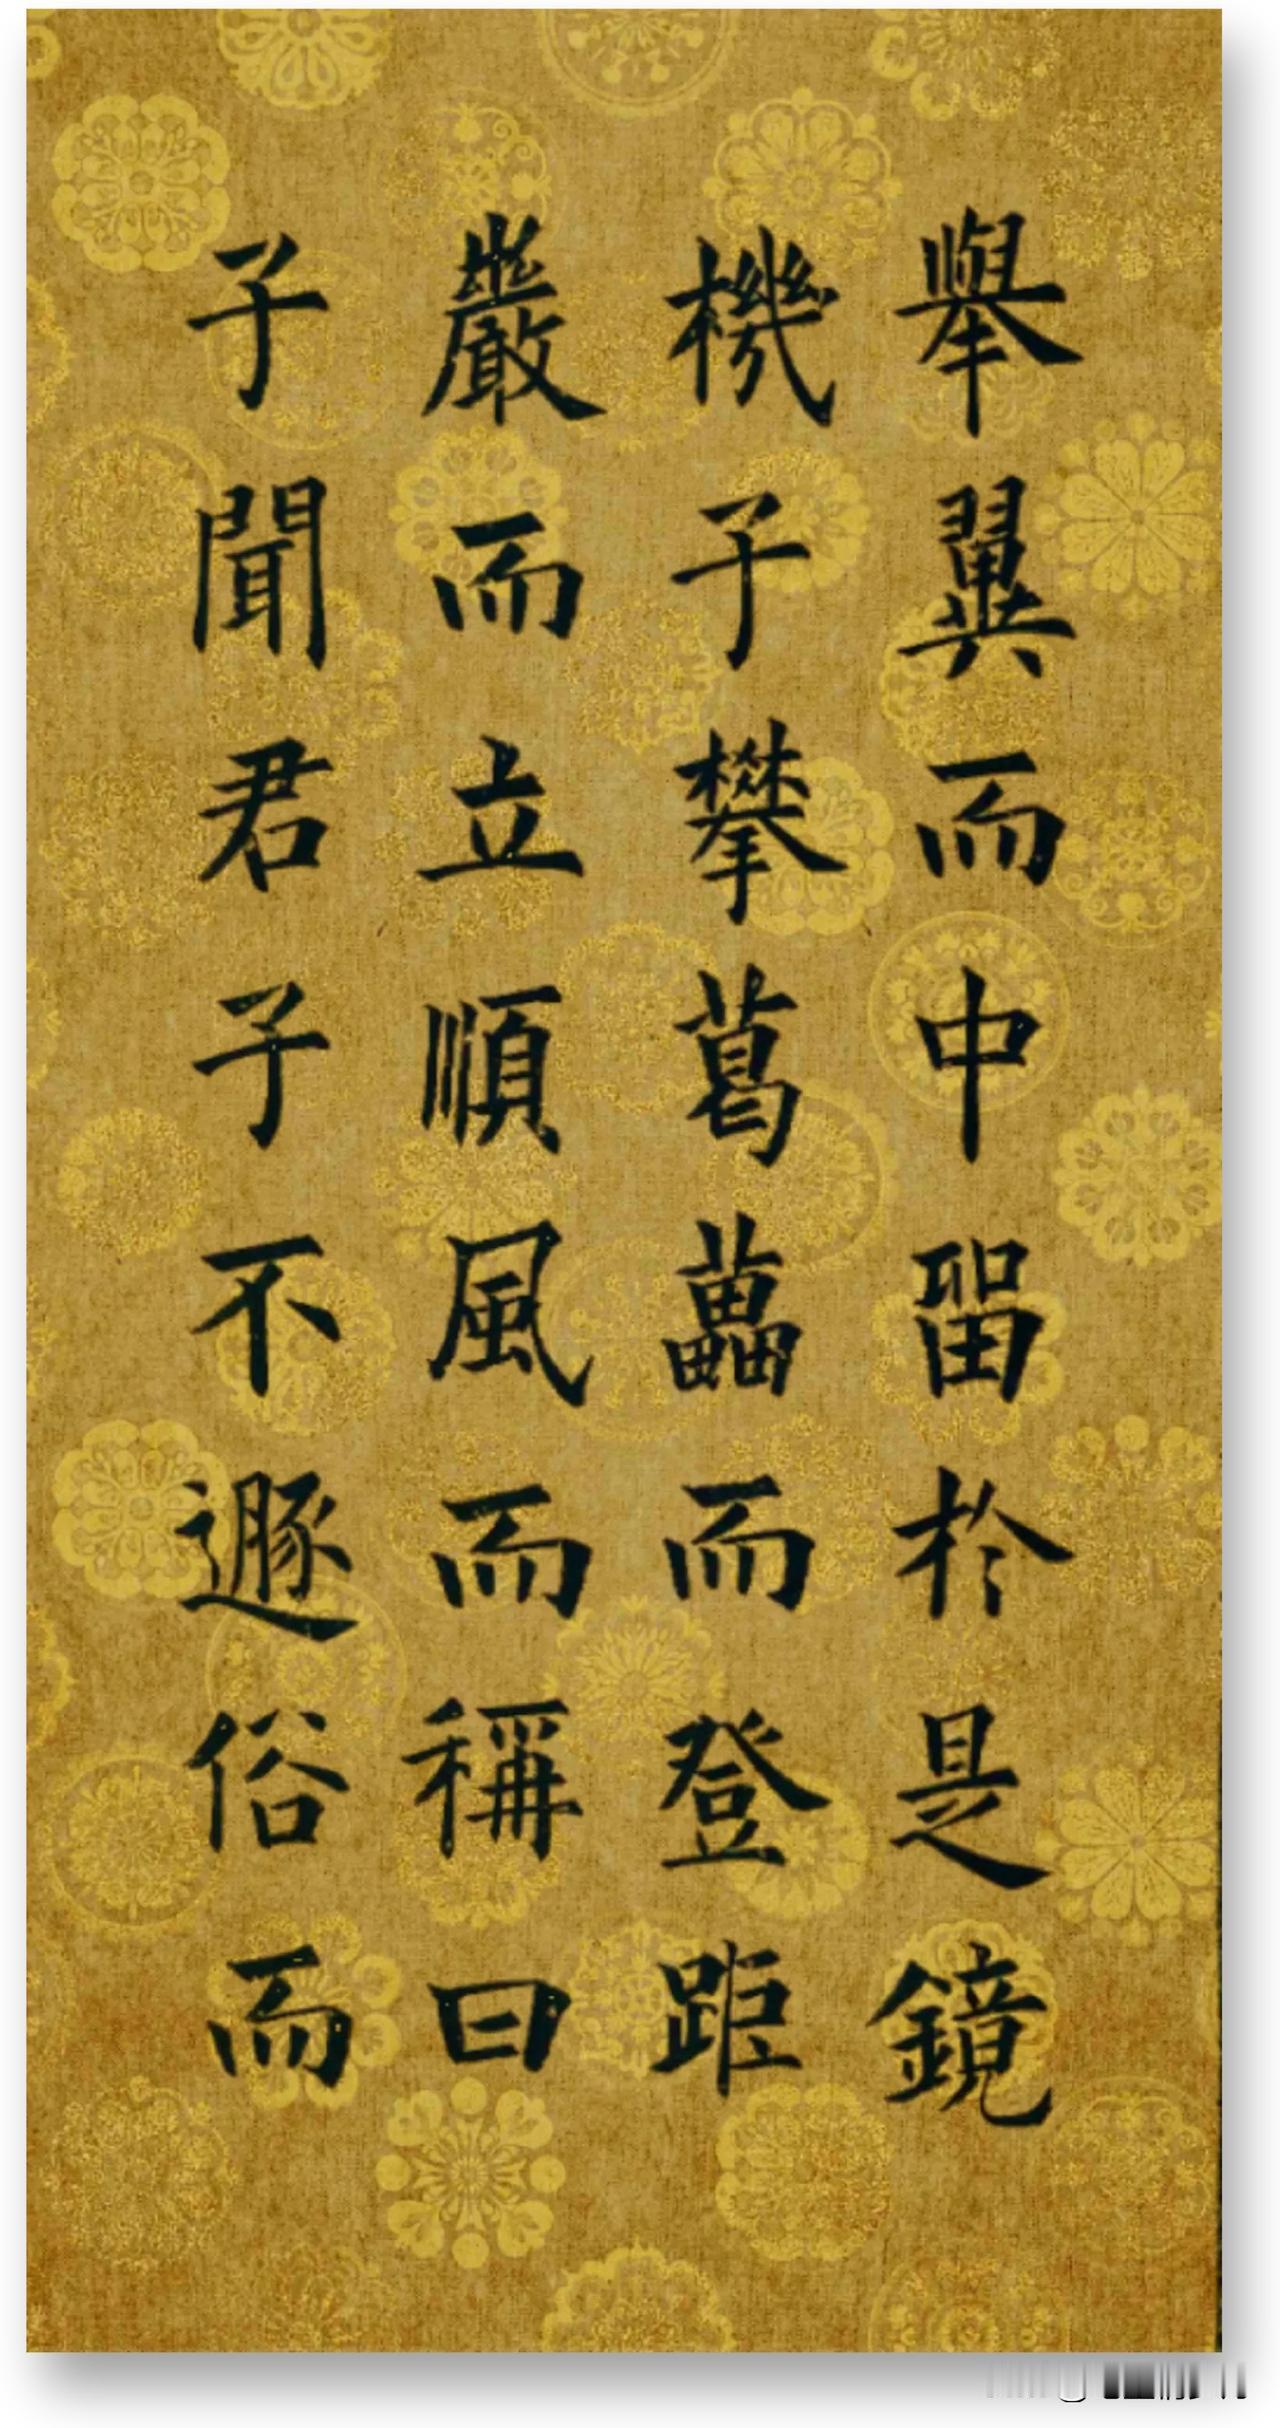 舉翼而中留於是鏡
機子攀葛藟而登距
嚴而立順風而稱曰
子聞君子不遯俗而